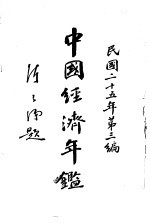 民國二十五年第三編
中國經濟年鑑
題